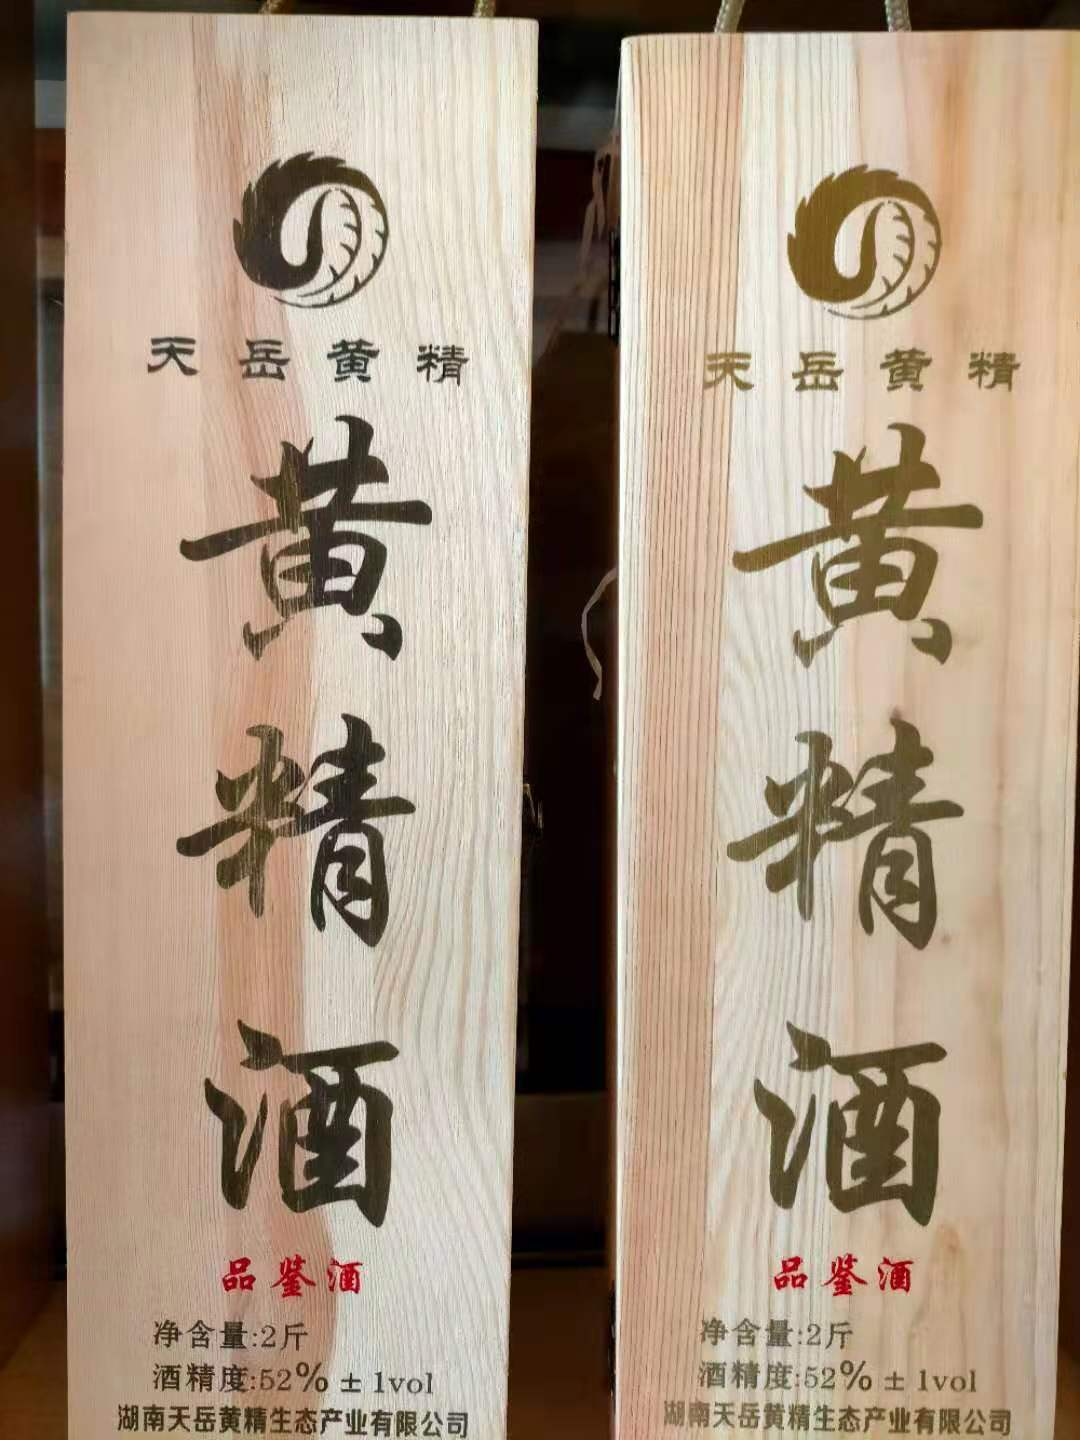 天岳黄精
黄精酒
品鉴酒
净含量:2斤
酒精度:52% ± 1vol
湖南天岳黄精生态产业有限公司
天岳黄精
黄精酒
品鉴酒
净含量:2斤
酒精度:52% ± 1vol
湖南天岳黄精生态产业有限公司